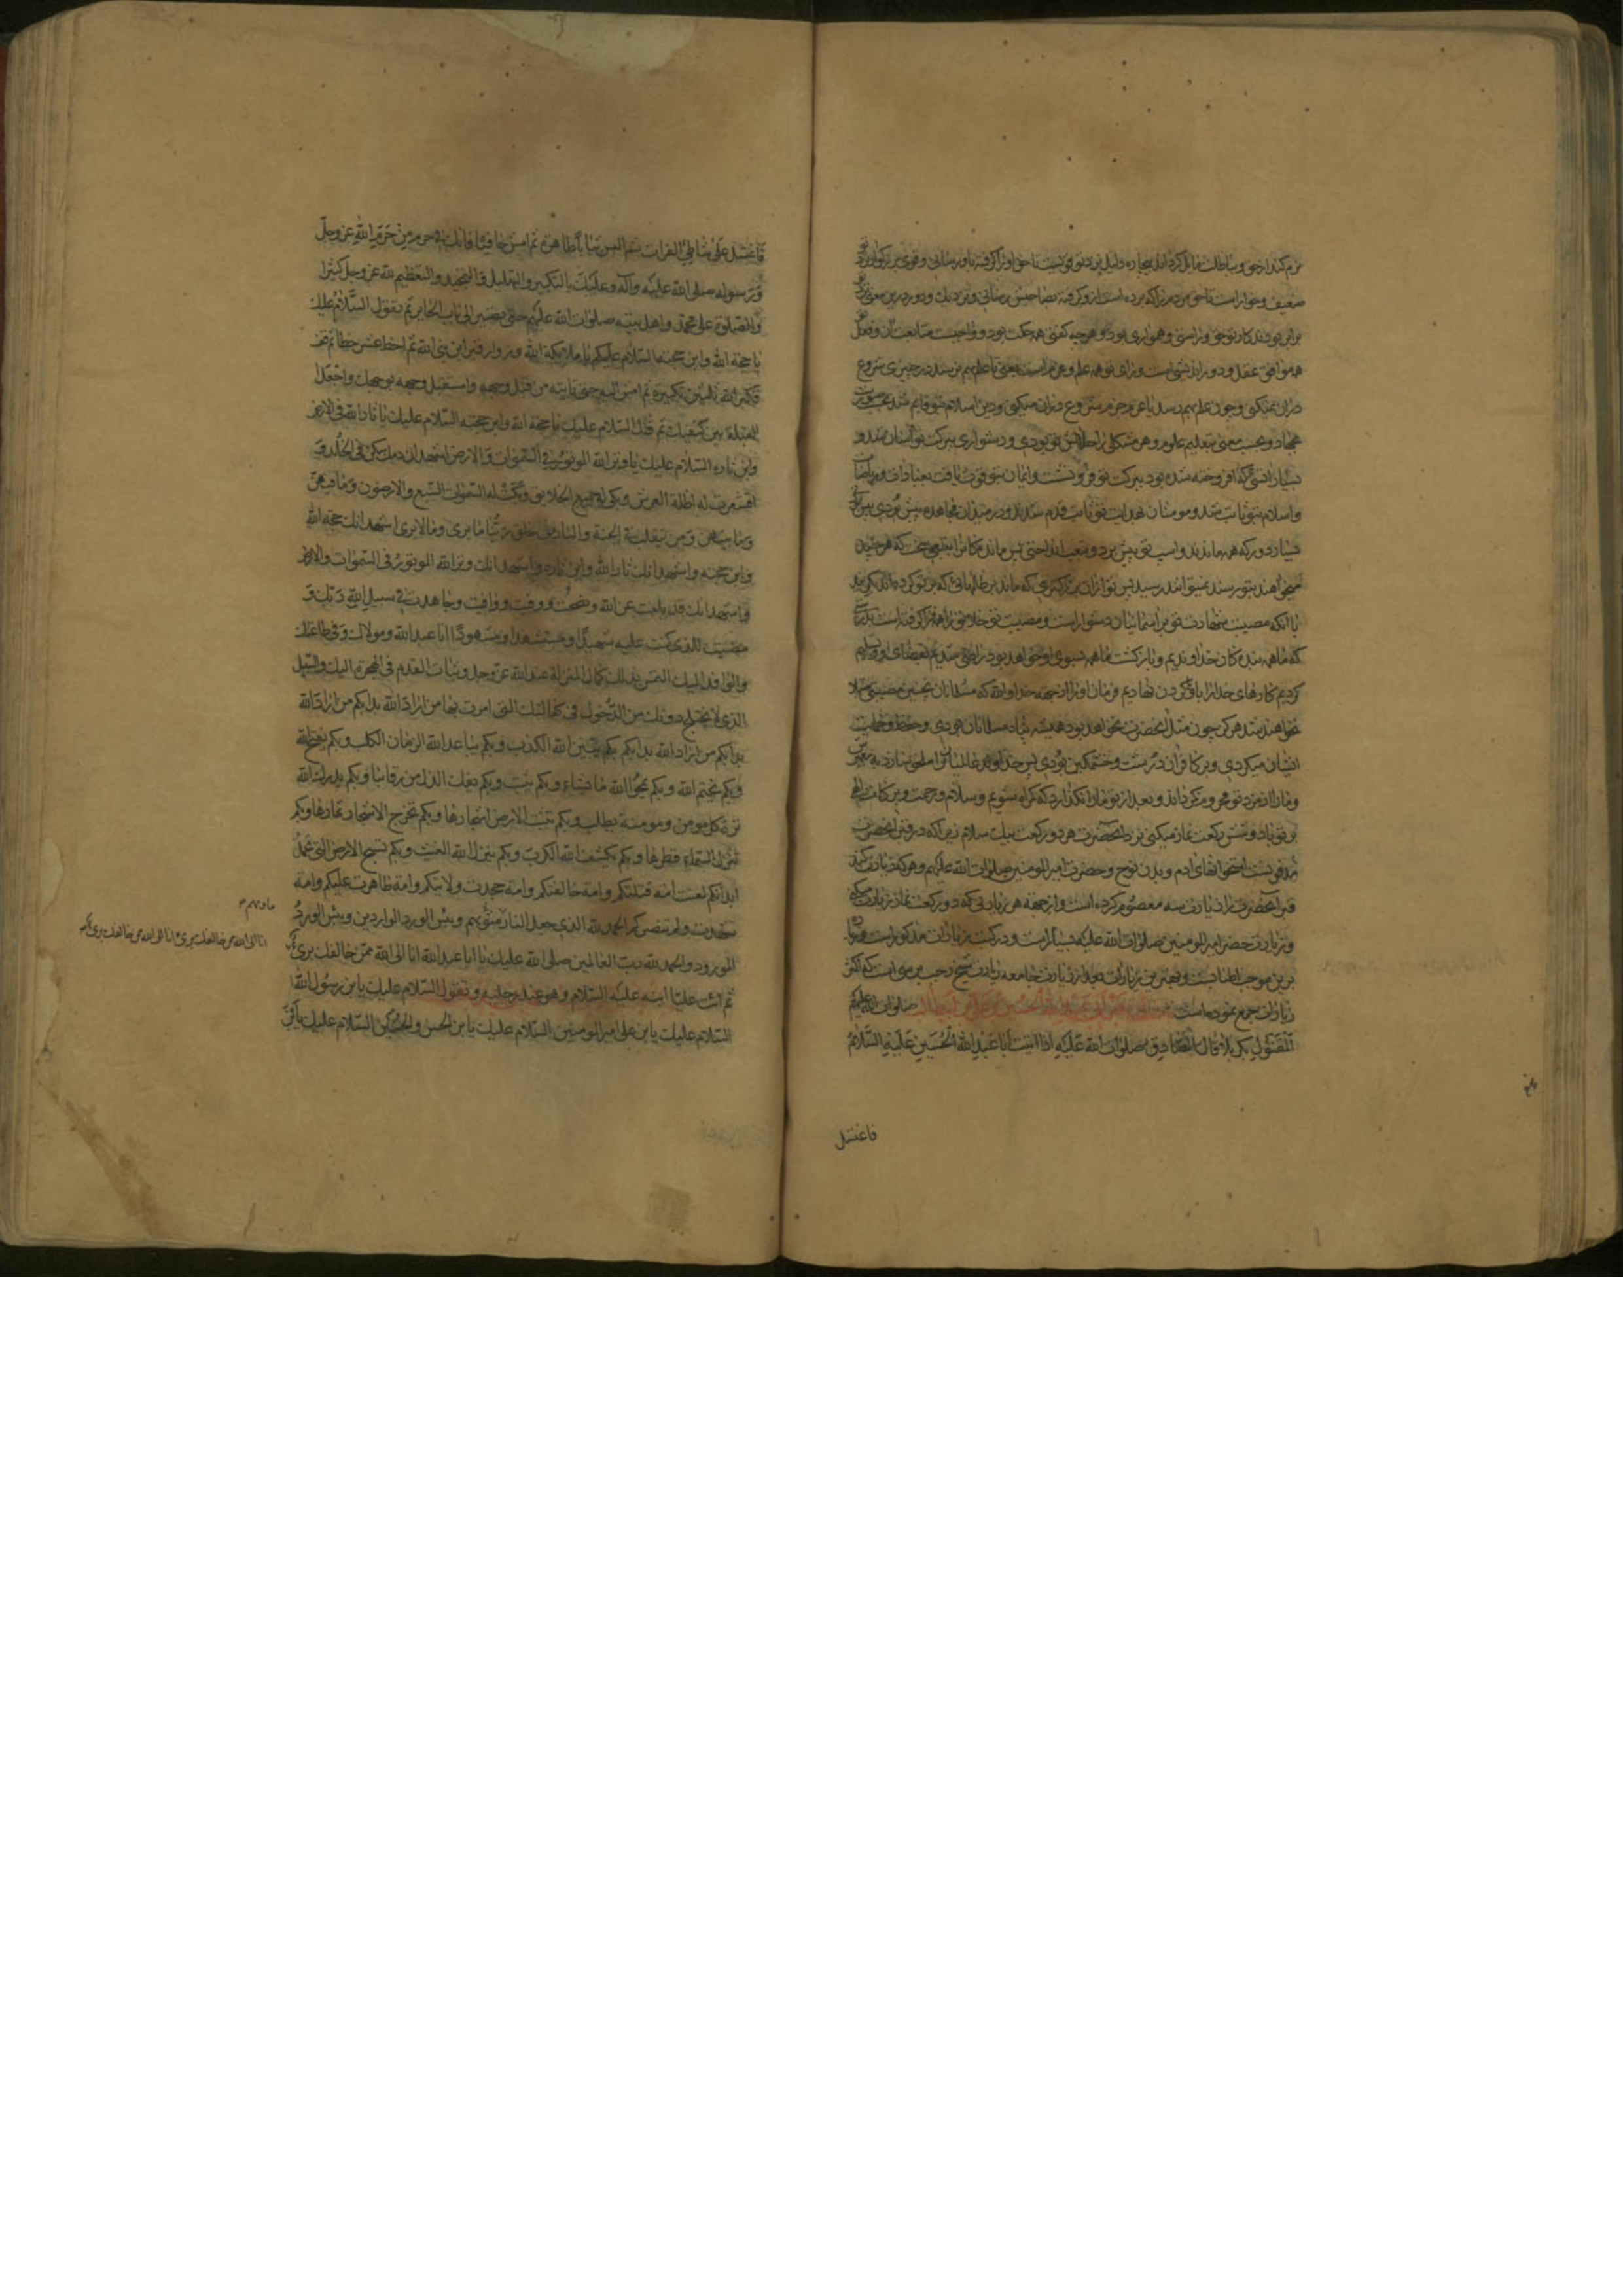 نرم کند از حق و بباطلت مایل گرداند بیچاره ذلیل نزد تو قوی است تا حق او را گرفته باو رسانی و قوی بزرگوار نزد تو
ضعیف و خوار است تا حق مردم را که برده است از و گرفته بصاحبش برسانی و نزدیک و دور درین معنی نزد تو
برابر بودند کار تو حق و راستی و همواری بود و هر چه گفتی همه حکمت بود و واجبست متابعت آن و فعل تو
همه موافق عقل و دوراندیشی است و رای تو همه علم و عزم است یعنی تا علم بهم نرسد در چیزی شروع
در آن نمیکنی و چون علم بهم رسد با عزم جزم شروع در ان میکنی و دین اسلام بتو قایم شد بحسب صورت
بجهاد و بحسب معنی بتعلیم علوم و هر مشکلی را حلالش تو بودی و دشواری ببرکت تو آسان شد و
بسیار اتشی که افروخته شده بود ببرکت تو فرو نشست و ایمان بتو قوت یافت بعبادات و ریاضات
و اسلام بتو ثابت شد و مومنان بهدایت تو ثابت قدم شدند و در میدان مجاهده پیش بودی پیش
بسیار دور که همه ماندند و اسب تو پیش برد و بتعب انداختی پس مانده کانرا بتعبی سخت که هر چند
میخواهند بتو رسند نمیتوانند رسید پس تو از ان بزرگتری که ماند بر ظلمهائی که بر تو کرده اند بگریند
با آنکه مصیبت شهادت تو بر آسمانیان دشوار است و مصیبت تو خلایق را همه فرا گرفته است بدرستی
که ما همه بنده کان خداوندیم و بازگشت ما همه بسوی او خواهد بود راضی شدیم بقضای او و تسلیم
کردیم کارهای خدا را باو و گردن نهادیم فرمان او را از جمیع جهه خدا والله که مسلمانان بچنین مصیبتی مبتلا
نخواهند شد هرگز چون مثل آنحضرت نخواهد بود همیشه پناه مسلمانان بودی و حفظ و حمایت
ایشان میکردی و بر کافران درشت و خشمگین بودی پس خداوند عالمیان ترا ملحق سازد به پیغمبرش
و ما را از مزد تو محروم نگرداند و بعد از تو ما را نگذارد که گمراه شویم و سلام و رحمت و برکات الهی
بر تو باد و شش رکعت نماز میکنی نزد آنحضرت هر دو رکعت بیک سلام زیرا که در قبر آنحضرت
مدفونست استخوانهای ادم و بدن نوح و حضرت امیر المومنین صلوات الله علیهم و هر که زیارت کند
قبر آنحضرت را زیارت سه معصوم کرده است و از جهه هر زیارتی که دو رکعت نماز زیارت میکند
و زیارت حضرت امیر المومنین صلوات الله علیه بسیار است و در کتب زیارات مذکور است و زیاده
برین موجب اطنابست و بهترین زیارات بعد از زیارت جامعه زیارت شیخ رجب برسی است که اکثر
زیارات جمع نموده است زیارة قبر ابی عبد الله الحسین بن علی بن ابیطالب صلوات الله علیهم
المقتول بکربلا قال الصادق صلوات الله علیه اذا اتیت ابا عبد الله الحسین علیه السلام
فاغتسل
فاغتسل علی شاطئ الفرات ثم البس ثیابا طاهرة ثم امش حافیا فانک فی حرم من حرم الله عز وجل
و رسوله صلی الله علیه و آله و علیک بالتکبیر و التهلیل و التمجید و التعظیم لله عز و جل کثیرا
و الصلوة علی محمد و اهل بیته صلوات الله علیهم حتی تصیر الی باب الحایر ثم تقول السلام علیک
یا حجة الله و ابن حجته السلام علیکم یا ملائکة الله و زوار قبر ابن نبی الله ثم اخط عشر خطا ثم قف
فکبر الله ثلثین تکبیرة ثم امش الیه حتی تاتیه من قبل وجهه و استقبل وجهه بوجهک و اجعل
القبلة بین کتفیک ثم قل السلام علیک یا حجة الله و ابن حجته السلام علیک یا ثار الله فی الارض
و ابن ثاره السلام علیک یا وتر الله الموتور فی السموات و الارض اشهد ان دمک سکن فی الخلد و
اقشعرت له اظلة العرش و بکی له جمیع الخلایق و بکت له السموات السبع و الارضون و ما فیهن
و ما بینهن و من یتقلب فی الجنة و النار من خلق ربنا ما یری و ما لا یری اشهد انک حجة الله
و ابن حجته و اشهد انک ثار الله و ابن ثاره و اشهد انک وتر الله الموتور فی السموات و الارض
و اشهد انک قد بلغت عن الله و نصحت و وفیت و وافیت و جاهدت فی سبیل الله ربک و
مضیت للذی کنت علیه شهیدا و مستشهدا و مشهودا انا عبد الله و مولاک و فی طاعتک
و الوافد الیک التمس بذلک کمال المنزلة عند الله عز وجل و ثبات القدم فی الهجرة الیک و السبیل
الذی لا یختلج دونک من الدخول فی کفالتک التی امرت بها من اراد الله بدا بکم من اراد الله
بدا بکم من اراد الله بدا بکم بکم یبین الله الکذب و بکم یباعد الله الزمان الکلب و بکم یفتح الله
و بکم یختم الله و بکم یمحو الله ما یشاء و بکم یثبت و بکم یفک الذل من رقابنا و بکم یدرک الله
ترة کل مومن و مومنة یطلب و بکم تنبت الارض اشجارها و بکم تخرج الاشجار ثمارها و بکم
تنزل السماء قطرها و بکم یکشف الله الکرب و بکم ینزل الله الغیث و بکم تسیخ الارض التی تحمل
ابدانکم لعنت امة قتلتکم و امة خالفتکم و امة جحدت ولایتکم و امة ظاهرت علیکم و امة
شهدت و لم تنصرکم الحمد لله الذی جعل النار مثویهم و بئس الورد الواردین و بئس الورد
المورود و الحمد لله رب العالمین صلی الله علیک یا ابا عبد الله انا الی الله ممن خالفک بریء
ثم ائت علیا ابنه علیه السلام و هو عند رجلیه و تقول السلام علیک یابن رسول الله
السلام علیک یابن علی امیر المومنین السلام علیک یابن الحسن و الحسین السلام علیک یابن
انا الی الله من خالفک بریء انا الی الله من خالفک بریء